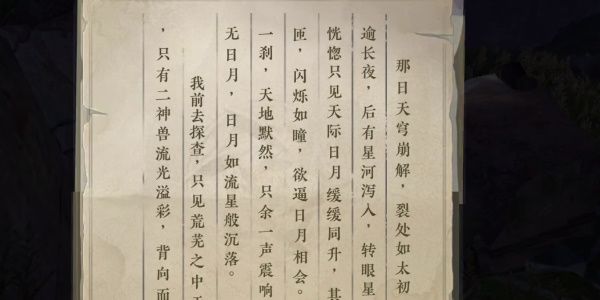 那日天穹崩解，裂处如太初
逾长夜，后有星河泻入，转眼星
恍惚只见天际日月缓缓同升，其
匝，闪烁如瞳，欲逼日月相会。
一刹，天地默然，只余一声震响
无日月，日月如流星般沉落。
我前去探查，只见荒芜之中
，只有二神兽流光溢彩，背向而